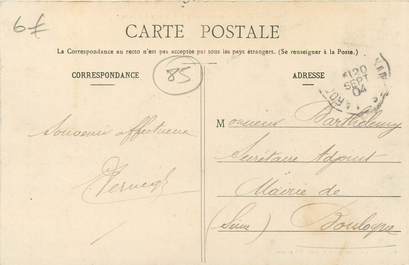 6€
CARTE POSTALE
La Correspondance au recto n'est pas acceptée par tous les pays étrangers. (Se renseigner à la Poste.)
CORRESPONDANCE
85
ADRESSE
20
SEPT
04
Souvenir affectueux
Monsieur Barthelemy
Secrétaire Adjoint
Mairie de
Boulogne
(Seine)